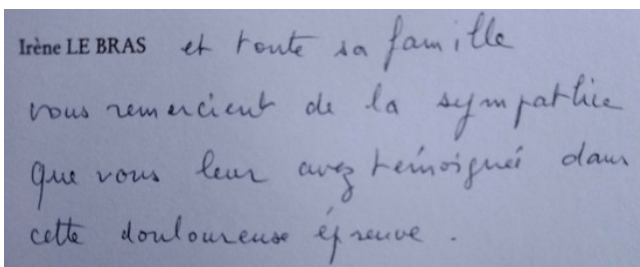 Irène LE BRAS et toute sa famille
vous remercient de la sympathie
que vous leur avez témoignée dans
cette douloureuse épreuve.